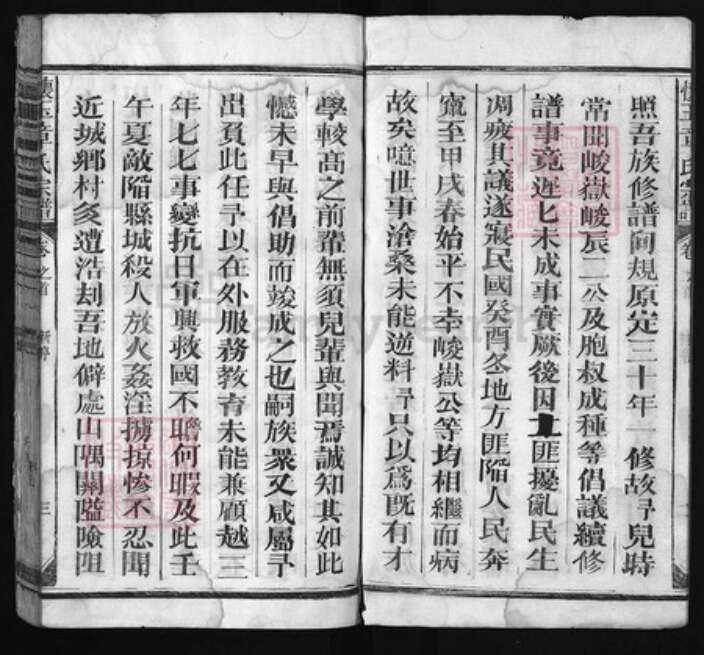 照吾族修譜向規原定三十年一修故予兒時
常聞峻嶽峻辰二公及胞叔成種等倡議續修
譜事竟遲匕未成事實厥後因匪擾亂民生
凋疲其議遂寢民國癸酉冬地方匪陷人民奔
竄至甲戌春始平不幸峻嶽公等均相繼而病
故矣噫世事滄桑未能逆料予只以爲既有才
學較高之前輩無須兒輩與聞焉誠知其如此
憾未早與倡助而竣成之也嗣族衆又咸屬予
出負此任予以在外服務教育未能兼顧越三
年七七事變抗日軍興救國不瞻何暇及此壬
午夏敵陷縣城殺人放火姦淫擄掠慘不忍聞
近城鄉村多遭浩刦吾地僻處山隅關隘險阻
懷玉章氏宗譜
卷之首
三